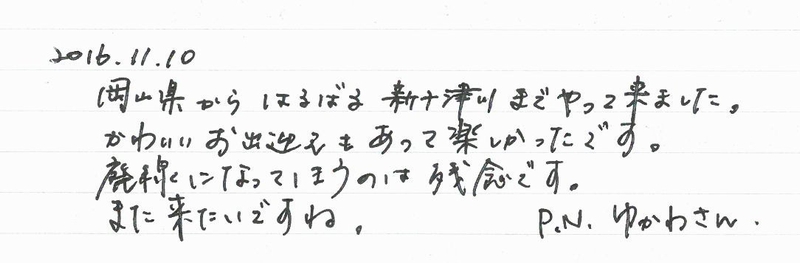 2016.11.10
岡山県からはるばる新十津川までやって来ました。
かわいいお出迎えもあって楽しかったです。
廃線になってしまうのは残念です。
また来たいですね。 P.N. ゆかわさん.